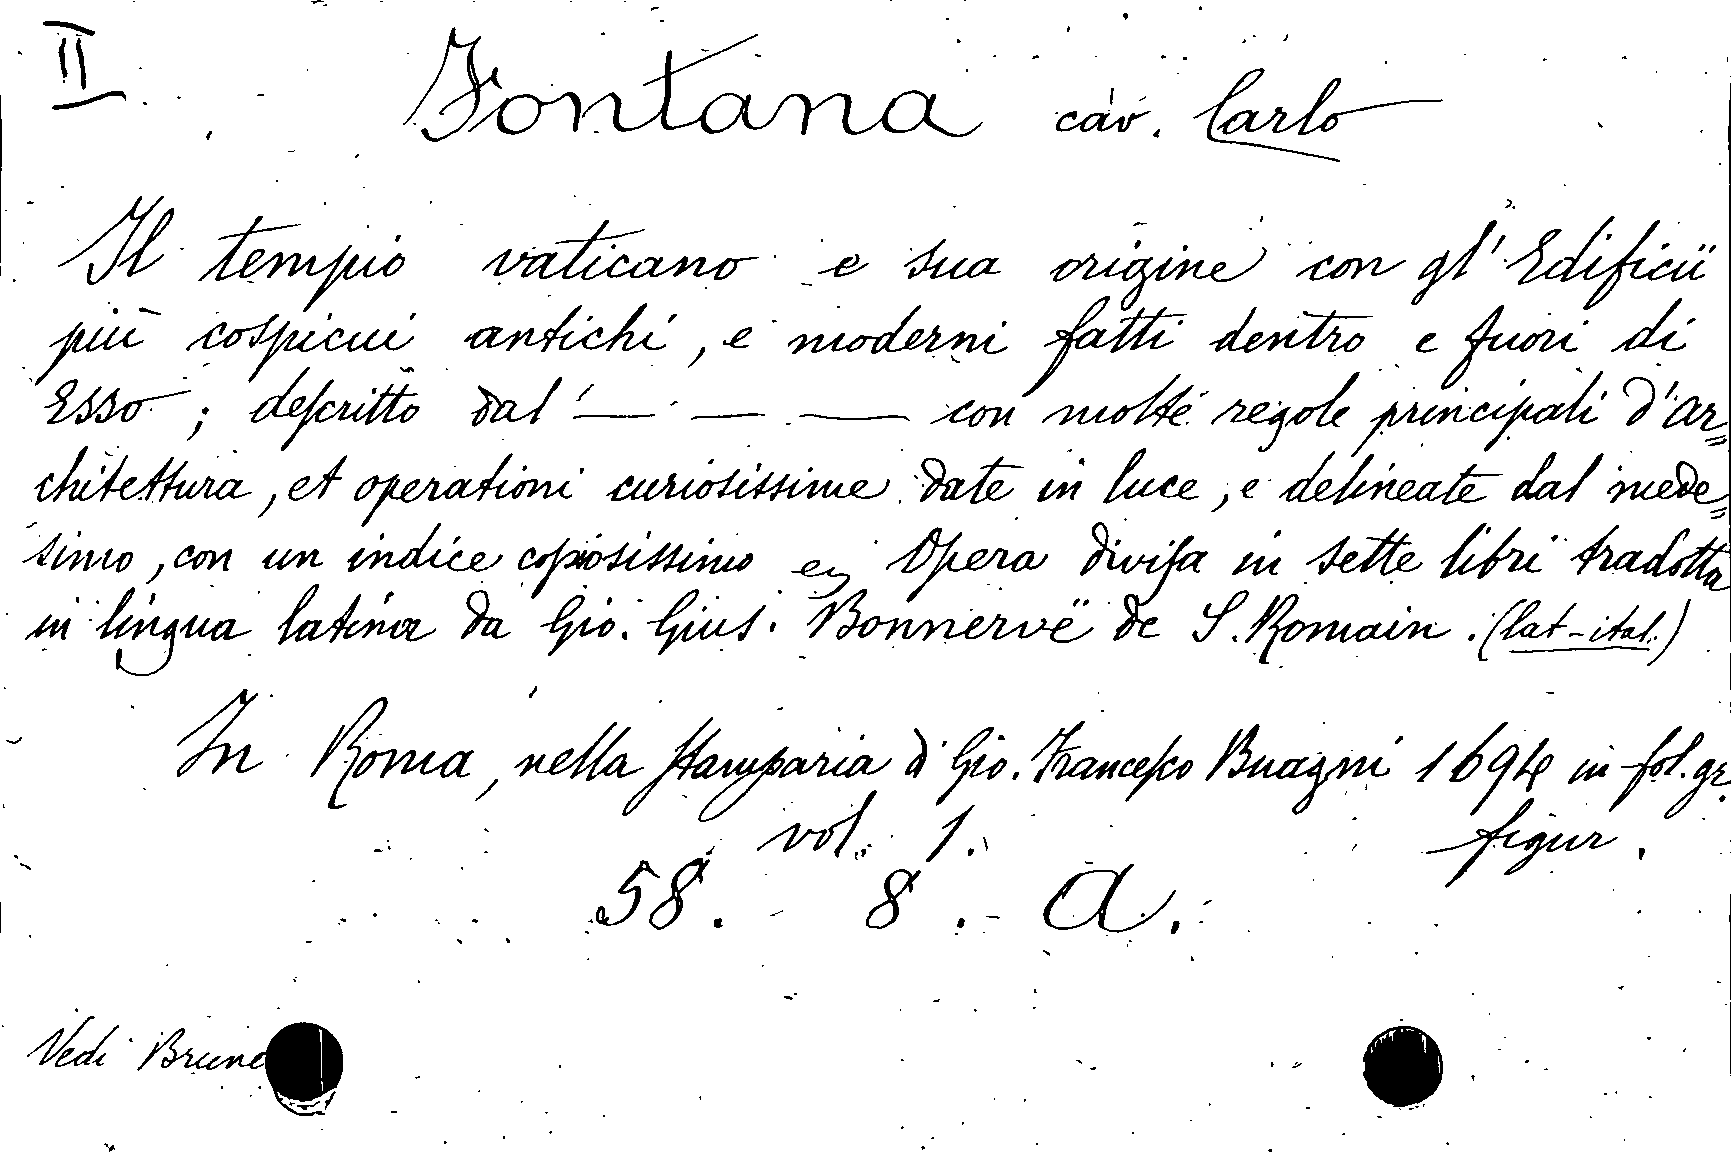 II
Fontana cav. Carlo
Il tempio vaticano e sua origine con gl' Edificii
più cospicui antichi, e moderni fatti dentro e fuori di
Esso; descritto dal — — — con molte regole principali d'ar„
chitettura, et operationi curiosissime date in luce, e delineate dal mede„
simo, con un indice copiosissimo ej Opera divisa in sette libri tradotta
in lingua latina da Gio. Gius. Bonnervë de S. Romain. (lat-ital.)
In Roma, nella stamparia di Gio. Francesco Buagni 1694 in fol. gr.
vol. 1. figur.
58. - 8. - A.
Vedi